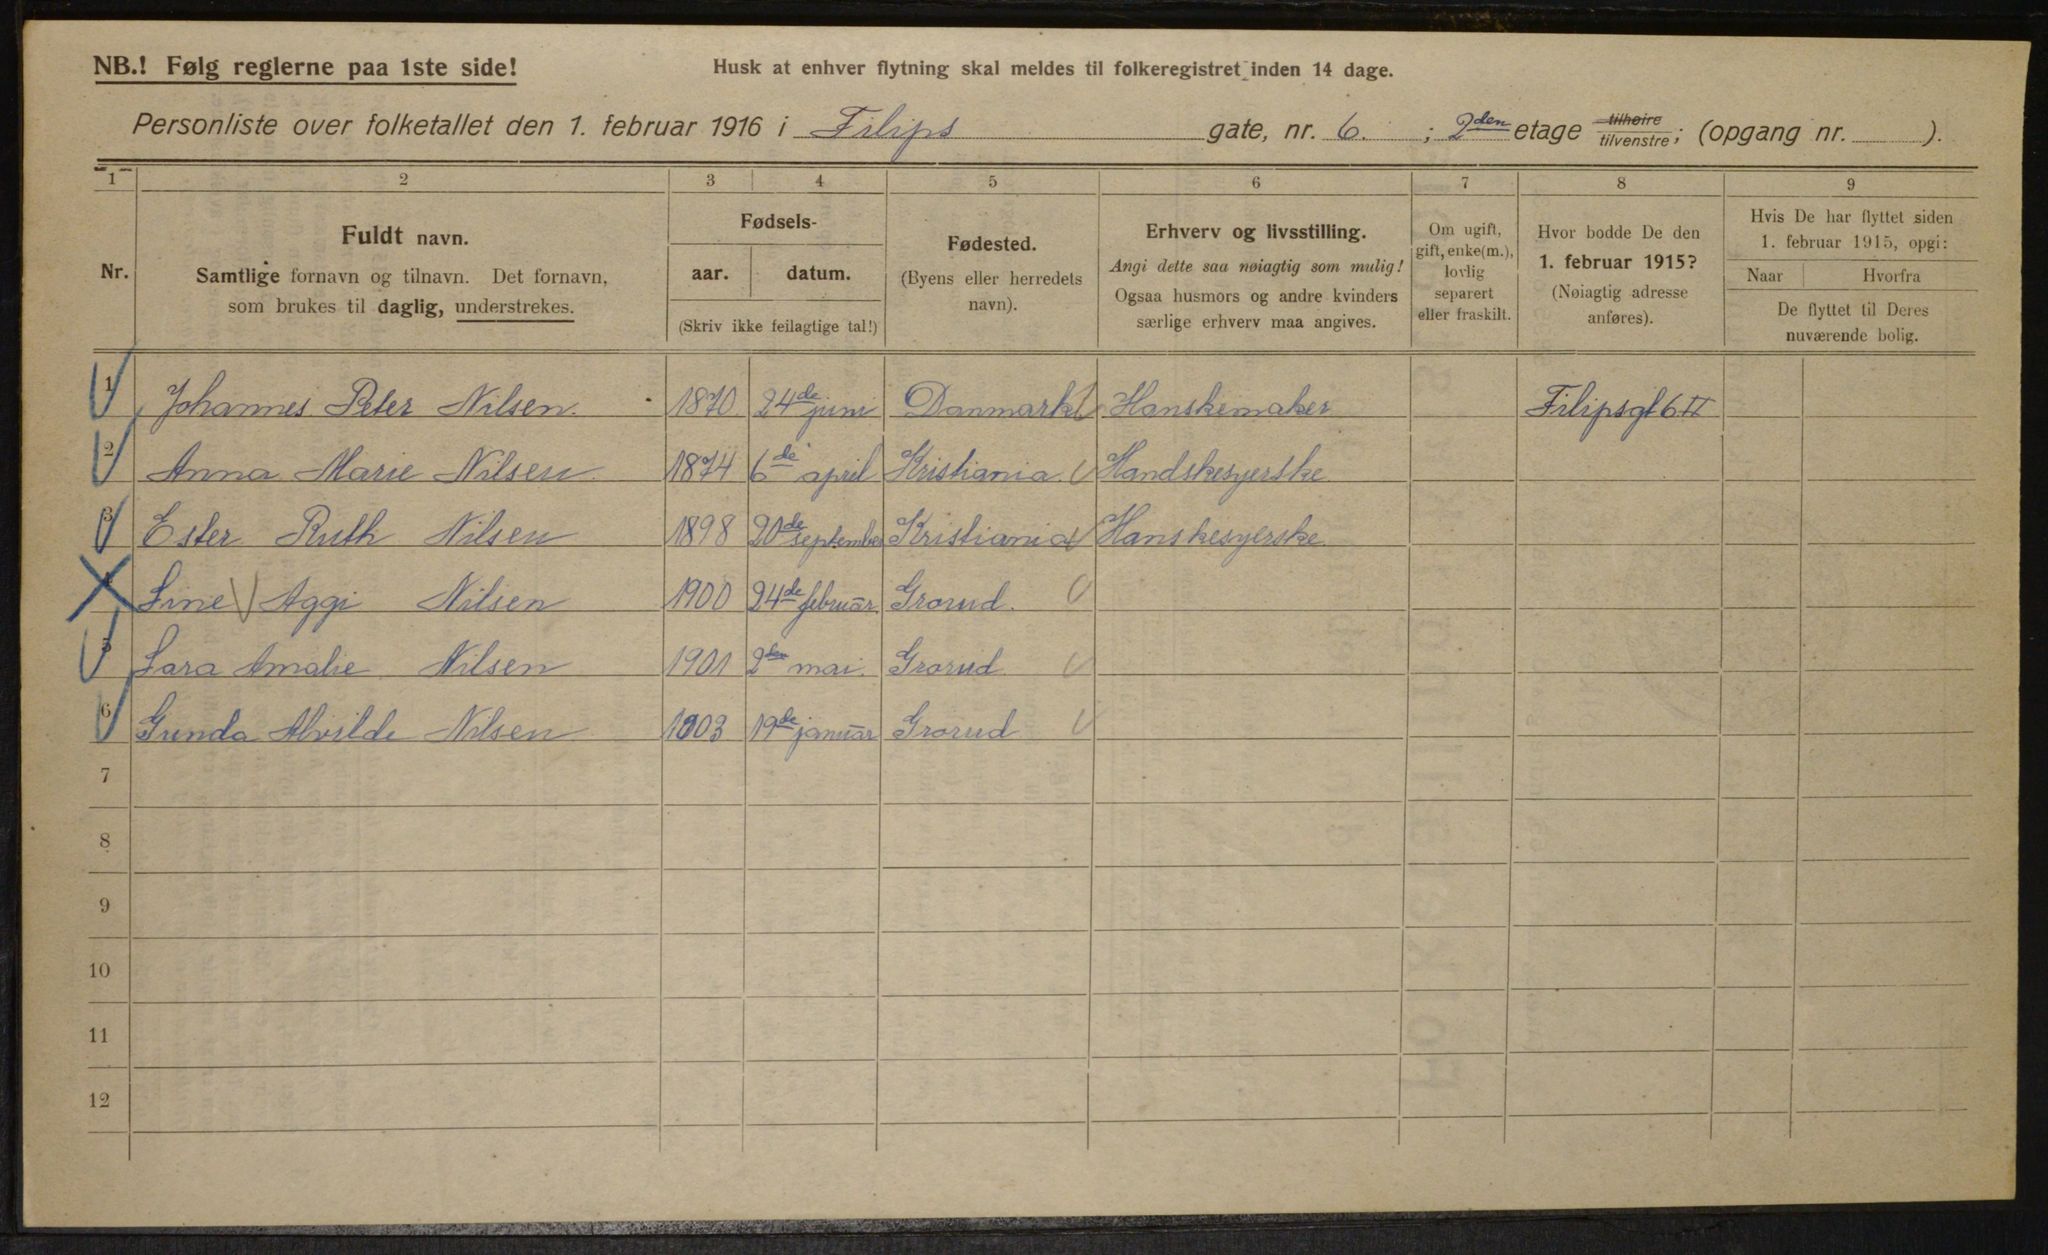 NB.! Følg reglerne paa 1ste side!
Husk at enhver flytning skal meldes til folkeregistret inden 14 dage.
Personliste over folketallet den 1. februar 1916 i Filips gate, nr. 6. ; 2den etage tilhøire tilvenstre; (opgang nr. ).
1 2 3 4 5 6 7 8 9
Nr.
Fuldt navn.
Samtlige fornavn og tilnavn. Det fornavn,
som brukes til daglig, understrekes.
Fødsels-
aar. datum.
(Skriv ikke feilagtige tal!)
Fødested.
(Byens eller herredets
navn).
Erhverv og livsstilling.
Angi dette saa nøiagtig som mulig!
Ogsaa husmors og andre kvinders
særlige erhverv maa angives.
Om ugift,
gift, enke(m.),
lovlig
separert
eller fraskilt.
Hvor bodde De den
1. februar 1915?
(Nøiagtig adresse
anføres).
Hvis De har flyttet siden
1. februar 1915, opgi:
Naar Hvorfra
De flyttet til Deres
nuværende bolig.
1 Johannes Peter Nilsen. 1870 24de juni Danmark Hanskemaker Filipsgt 6 II
2 Anna Marie Nilsen. 1874 6de april Kristiania. Handskesyerske
3 Ester Ruth Nilsen 1898 20de september Kristiania Hanskesyerske.
4 Line Aggi Nilsen 1900 24de februar. Grorud.
5 Sara Amalie Nilsen 1901 2den mai. Grorud
6 Gunda Alvilde Nilsen 1903 19de januar Grorud
7
8
9
10
11
12